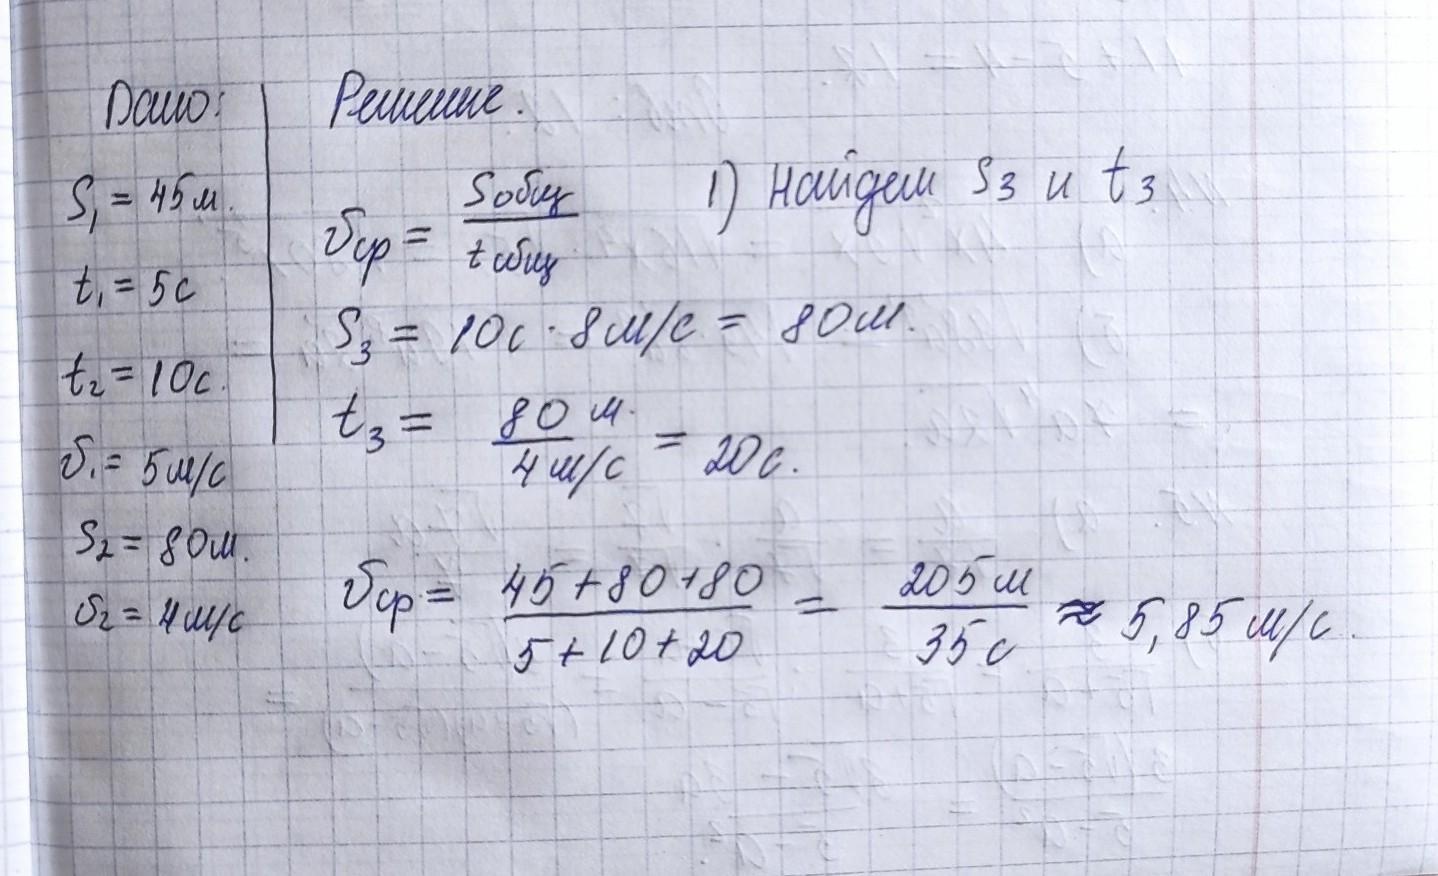 Дано:
S₁ = 45м.
t₁ = 5с
t₂ = 10с.
υ₁ = 5м/с
S₂ = 80м.
υ₂ = 4м/с
Решение.
υср = Sобщ / tобщ
1) Найдем S₃ и t₃
S₃ = 10с · 8м/с = 80м.
t₃ = 80 м. / 4 м/с = 20с.
υср = 45+80+80 / 5+10+20 = 205м / 35с ≈ 5,85 м/с.